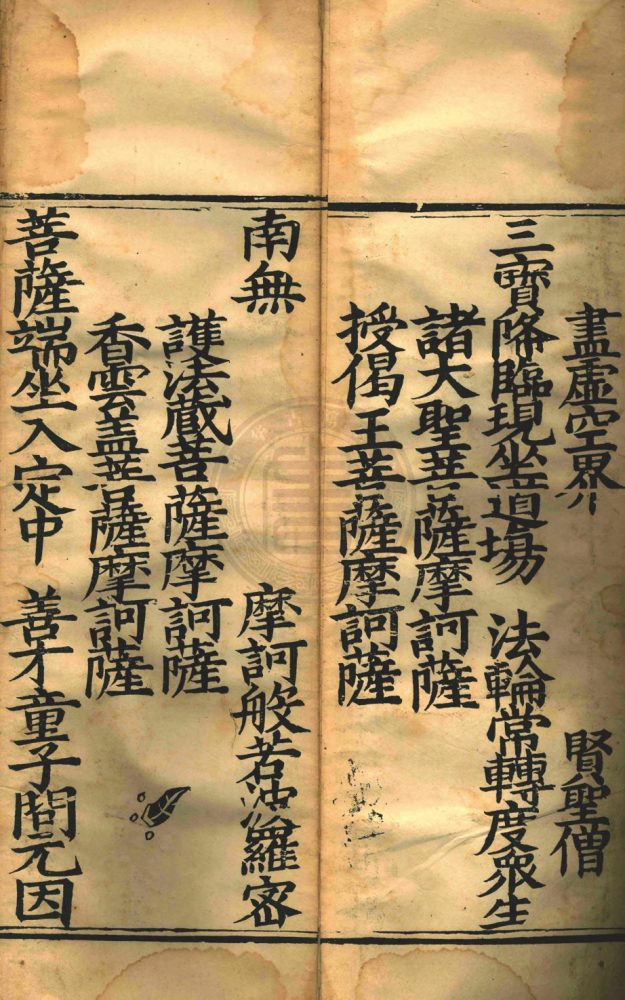 盡虛空界　賢聖僧
三寶降臨現坐道場　法輪常轉度眾生
諸大聖菩薩摩訶薩
授偈王菩薩摩訶薩
南無　摩訶般若波羅密
護法藏菩薩摩訶薩
香雲盖菩薩摩訶薩
菩薩端坐入定中　善才童子問元因